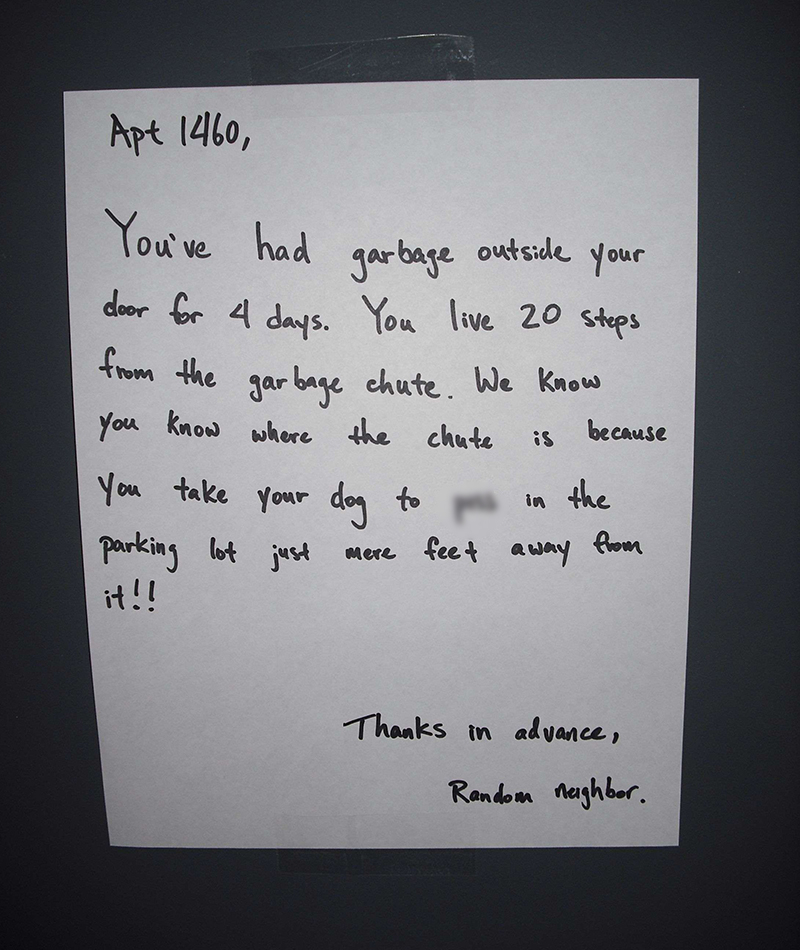 Apt 1460,
You've had garbage outside your
door for 4 days. You live 20 steps
from the garbage chute. We know
you know where the chute is because
you take your dog to in the
parking lot just mere feet away from
it!!
Thanks in advance,
Random neighbor.